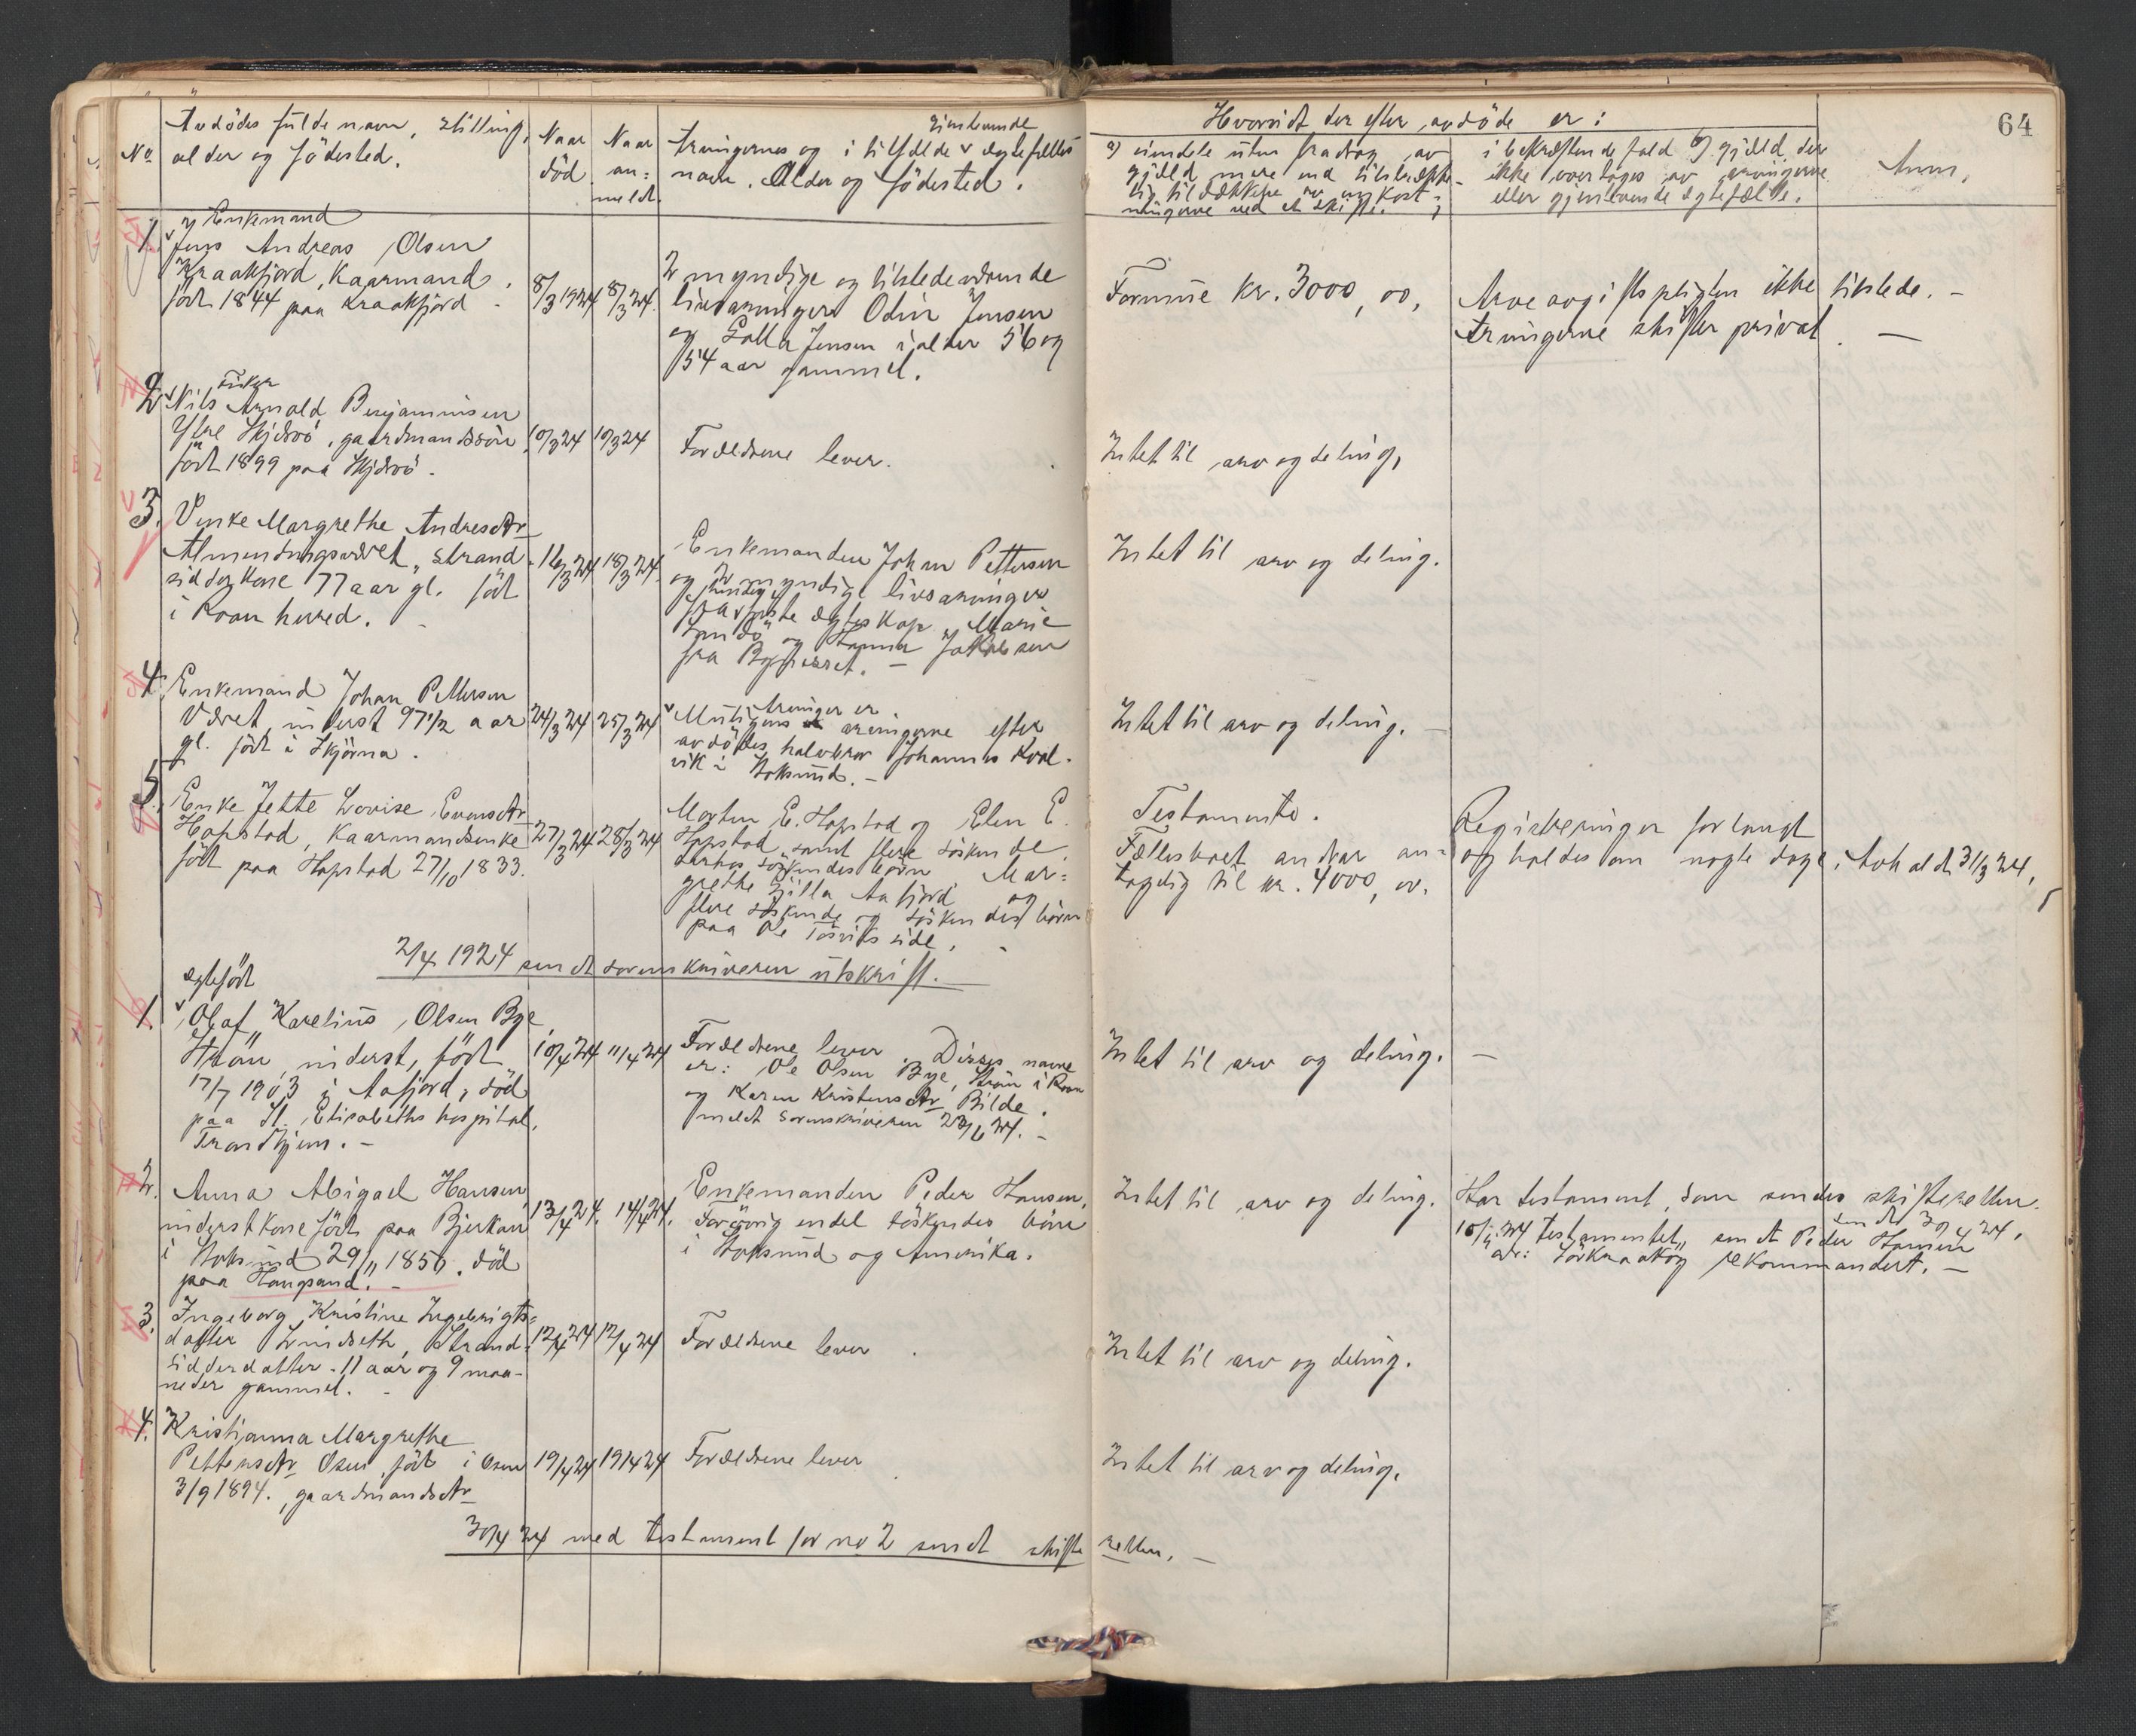 64
No.
Avdödes fulde navn, stilling,
alder og födested.
Naar
död
Naar
an=
meldt.
gjenlevende
Arvingernes og i tilfælde ægtefælles
navn. Alder og födested.
Hvorvidt der efter avdöde er:
a) eiendele uten fradrag av
gjæld mere end tilstrække-
lig til dækkelse av omkost-
ningerne ved et skifte.
i bekræftende fald b) gjæld der
ikke overtages av arvingerne
eller gjenlevende ægtefælle.
Anm.
1.
Enkemand
Jens Andreas Olsen
Kraakfjord, Kaarmand.
födt 1844 paa Kraakfjord
8/3 1924
8/3 24.
2 myndige og tilstedeværende
livsarvinger Odin Jensen
og Jensen i alder 56 og
54 aar gammel.
Formue kr. 3000,00,
Arveavgiftspligten ikke tilstede. -
Arvingerne skifter privat. -
2.
Fisker
Nils Arnold Benjaminsen
Ytre Skjervö, gaardmandssön
födt 1899 paa Skjervö.
10/3 24
10/3 24
Forældrene lever.
Intet til arv og deling,
3.
Vinke Margrethe Andresdtr
Almenningsværet, strand-
sidderkone 77 aar gl. födt
i Roan herred.
16/3 24
18/3 24.
Enkemanden Johan Pettersen
og 2 myndige livsarvinger
fra förste ægteskap, Marie
Sandö og Hanna Jakobsen
fra Bessaker. -
Intet til arv og deling.
4.
Enkemand Johan Pettersen
Været, inderst 97 1/2 aar
gl. födt i Skjörna.
24/3 24
25/3 24
Arvinger er
Mutigens arvingerne efter
avdödes halvbror Johannes Kval-
vik i Stoksund. -
Intet til arv og deling. -
5.
Enke Jette Lovise Evensdtr
Hopstad, Kaarmandsenke
födt paa Hopstad 27/10 1833.
27/3 24
28/3 24
Morten E. Hopstad og Elen E.
Hopstad samt flere söskende,
derhos söskendes börn Mar=
grethe Aafjord og
flere söskende og söskendes börn
paa Ole side.
Testamente.
Fællesboet andrar an-
tagelig til kr. 4000,00.
Registreringen forlangt
og holdes om nogle dage. Avholdt 31/3 24,
2/4 1924 sendt sorenskriveren utskrift. -
1.
ægtefödt
Olaf Karelius Olsen Bye
Strön, inderst, födt
17/7 1903 i Aafjord, död
paa St. Elisabeths hospital,
Trondhjem. -
10/4 24
11/4 24
Forældrene lever. Disses navne
er: Ole Olsen Bye, Strön i Roan
og Karen Kristensdtr Bilde.
meldt sorenskriveren 23/6 24. -
Intet til arv og deling. -
2.
Anna Abigael Hansen
inderstkone födt paa Bjerkan
i Stoksund 29/11 1856. död
paa Haugsand. -
13/4 24.
14/4 24.
Enkemanden Peder Hansen.
Forövrig endel söskendes börn
i Stoksund og Amerika.
Intet til arv og deling.
Har testament, som sendes skifteretten.
sendt 30/4 24.
testamentet sendt Peder Hansen
adr: Sörkraaköy rekommandert. -
3.
Ingeborg Kristine Ingebrigts-
datter Lindseth, Strand-
sidderdatter. 11 aar og 9 maa-
neder gammel.
12/4 24
12/4 24
Forældrene lever.
Intet til arv og deling.
4.
Kristianna Margrethe
Pettersdtr Osen, födt i Osen
3/9 1894, gaardmandsdtr
19/4 24
19/4 24
Forældrene lever
Intet til arv og deling.
30/4 24 med testament for no 2 sendt skifteretten. -